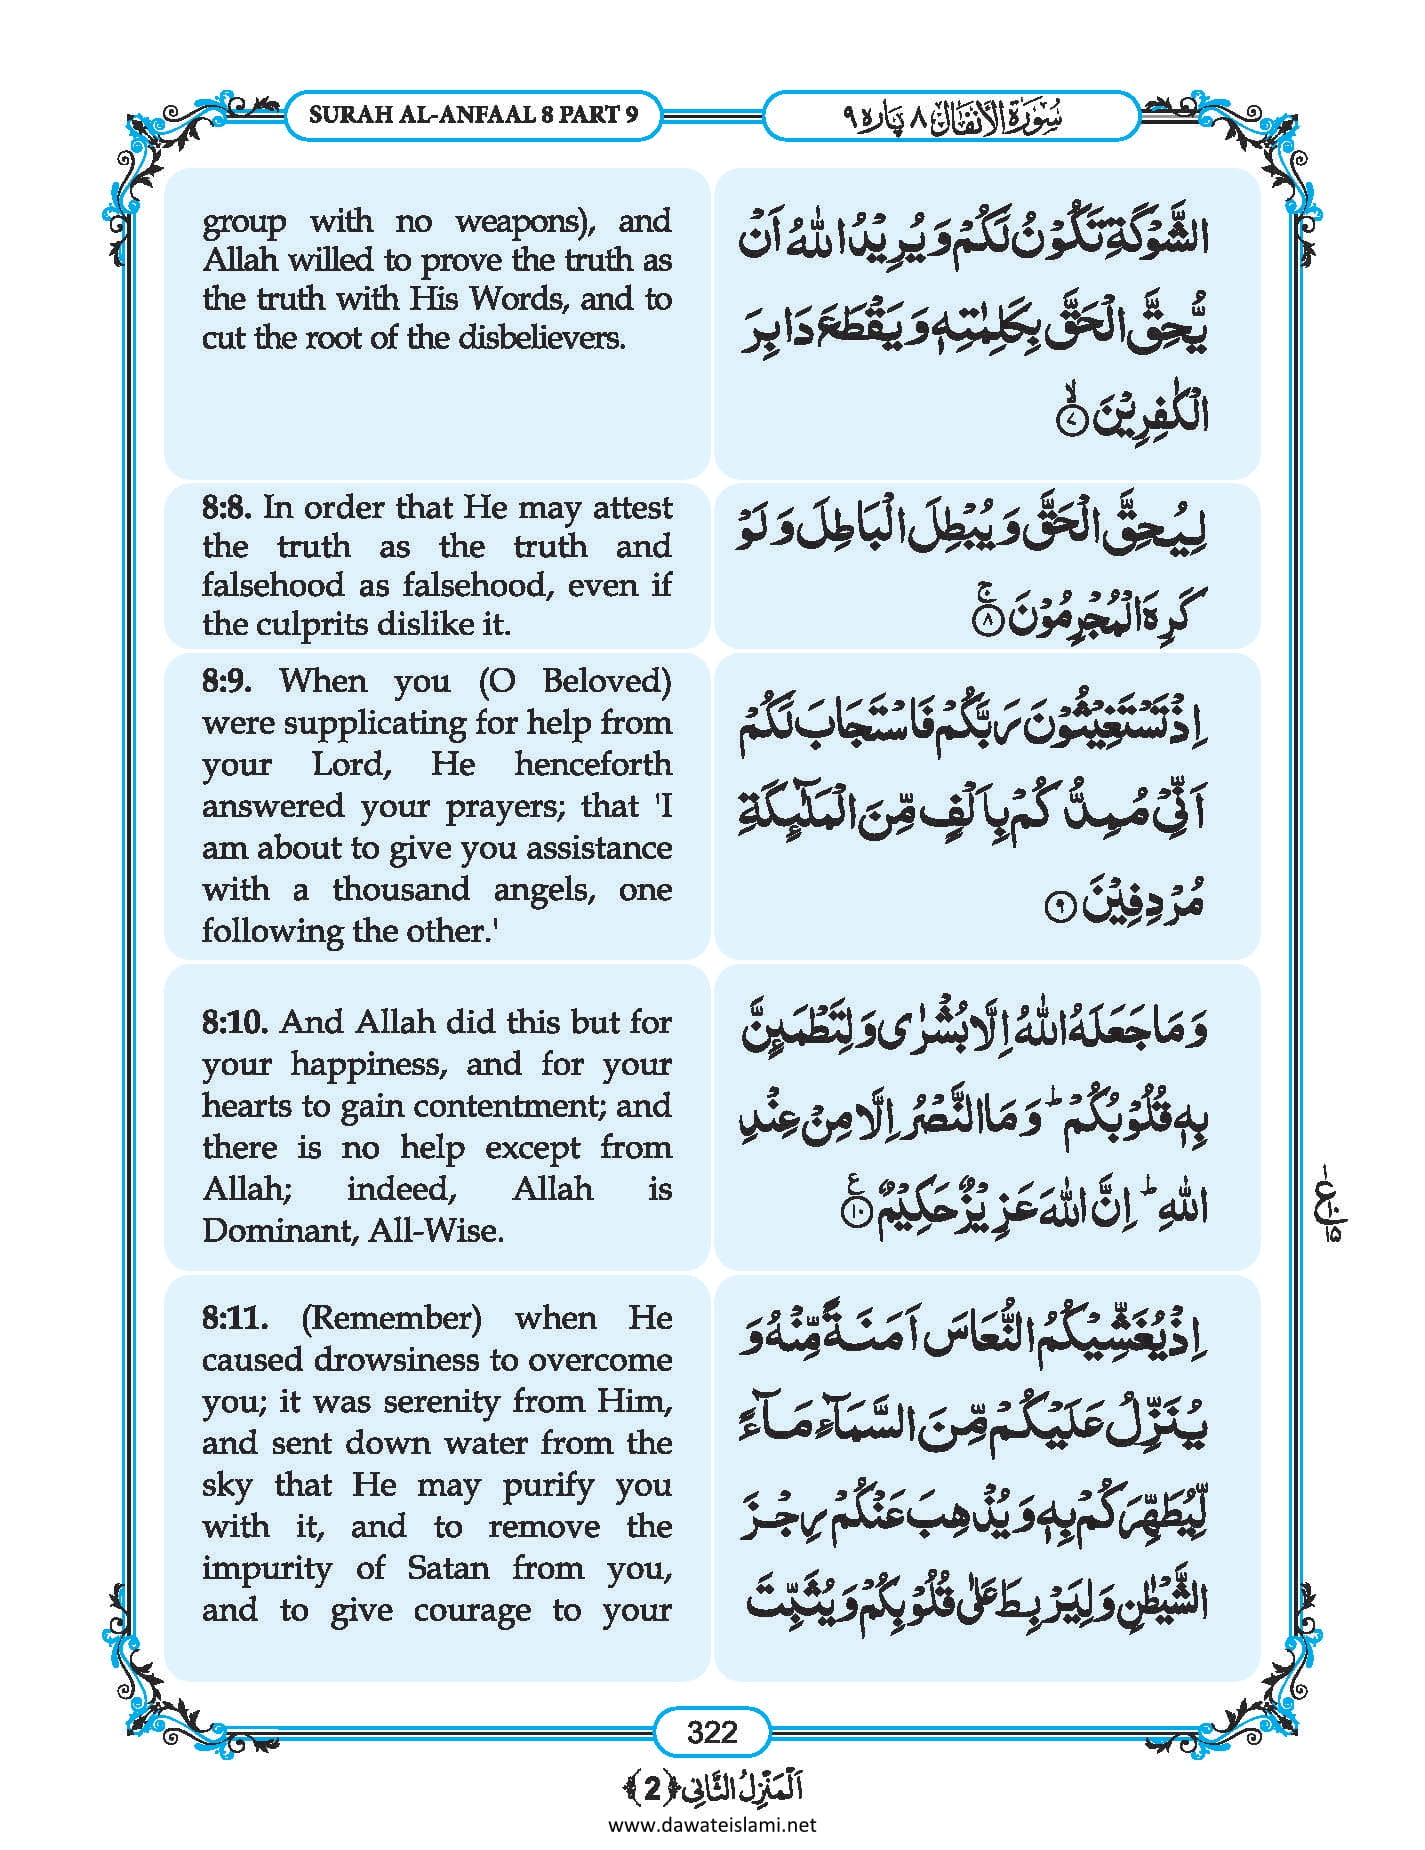 SURAH AL-ANFAAL 8 PART 9
سُوْرَةُ الْاَنْفَال ٨ پَارہ ٩
group with no weapons), and
Allah willed to prove the truth as
the truth with His Words, and to
cut the root of the disbelievers.
الشَّوْكَةِ تَكُوْنُ لَكُمْ وَ يُرِيْدُ اللّٰهُ اَنْ
يُّحِقَّ الْحَقَّ بِكَلِمٰتِهٖ وَ يَقْطَعَ دَابِرَ
الْكٰفِرِيْنَ ۙ﴿۷﴾
8:8. In order that He may attest
the truth as the truth and
falsehood as falsehood, even if
the culprits dislike it.
لِيُحِقَّ الْحَقَّ وَ يُبْطِلَ الْبَاطِلَ وَ لَوْ
كَرِهَ الْمُجْرِمُوْنَ ۚ﴿۸﴾
8:9. When you (O Beloved)
were supplicating for help from
your Lord, He henceforth
answered your prayers; that 'I
am about to give you assistance
with a thousand angels, one
following the other.'
اِذْ تَسْتَغِيْثُوْنَ رَبَّكُمْ فَاسْتَجَابَ لَكُمْ
اَنِّيْ مُمِدُّكُمْ بِاَلْفٍ مِّنَ الْمَلٰٓىِٕكَةِ
مُرْدِفِيْنَ ﴿۹﴾
8:10. And Allah did this but for
your happiness, and for your
hearts to gain contentment; and
there is no help except from
Allah; indeed, Allah is
Dominant, All-Wise.
وَ مَا جَعَلَهُ اللّٰهُ اِلَّا بُشْرٰى وَ لِتَطْمَىِٕنَّ
بِهٖ قُلُوْبُكُمْ ؕ وَ مَا النَّصْرُ اِلَّا مِنْ عِنْدِ
اللّٰهِ ؕ اِنَّ اللّٰهَ عَزِيْزٌ حَكِيْمٌ ﴿۱۰﴾ ع
۱
ع ۱۰
۱۵
8:11. (Remember) when He
caused drowsiness to overcome
you; it was serenity from Him,
and sent down water from the
sky that He may purify you
with it, and to remove the
impurity of Satan from you,
and to give courage to your
اِذْ يُغَشِّيْكُمُ النُّعَاسَ اَمَنَةً مِّنْهُ وَ
يُنَزِّلُ عَلَيْكُمْ مِّنَ السَّمَآءِ مَآءً
لِّيُطَهِّرَكُمْ بِهٖ وَ يُذْهِبَ عَنْكُمْ رِجْزَ
الشَّيْطٰنِ وَ لِيَرْبِطَ عَلٰى قُلُوْبِكُمْ وَ يُثَبِّتَ
322
اَلْمَنْزِلُ الثَّانِي ﴿2﴾
www.dawateislami.net